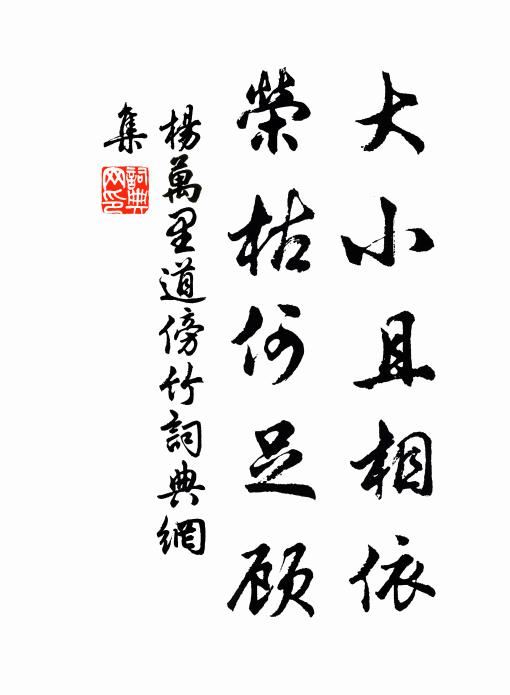 大小且相依
榮枯何足顧
楊萬里道傍竹詞典網
集
詞典网印